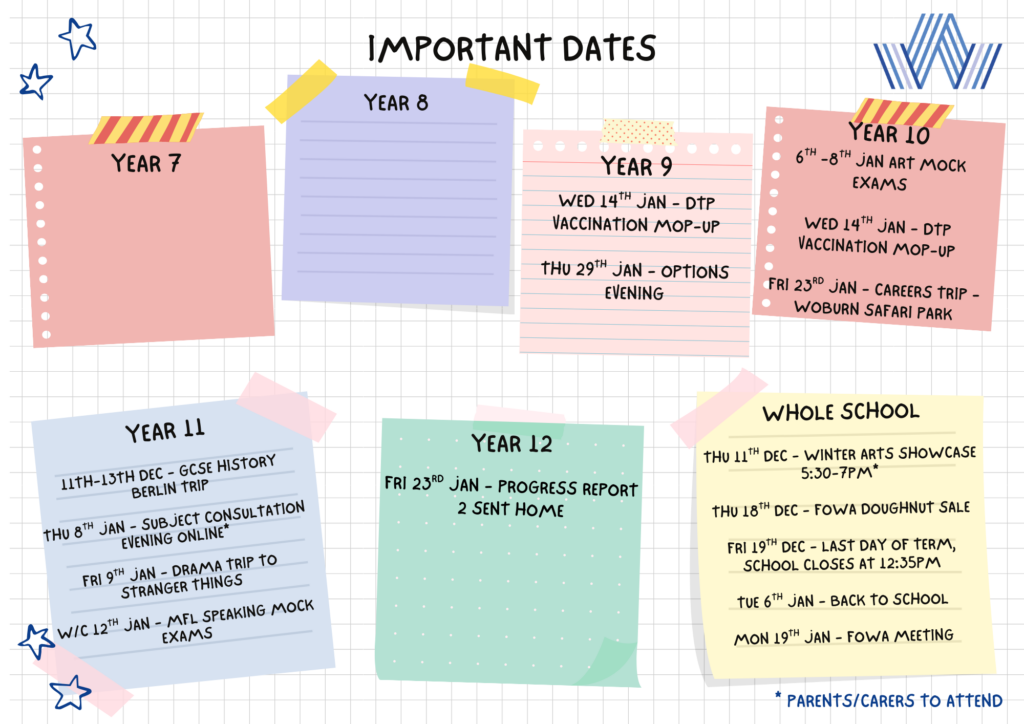 IMPORTANT DATES
YEAR 7
YEAR 8
YEAR 9
WED 14TH JAN - DTP
VACCINATION MOP-UP
THU 29TH JAN - OPTIONS
EVENING
YEAR 10
6TH -8TH JAN ART MOCK
EXAMS
WED 14TH JAN - DTP
VACCINATION MOP-UP
FRI 23RD JAN - CAREERS TRIP -
WOBURN SAFARI PARK
YEAR 11
11TH-13TH DEC - GCSE HISTORY
BERLIN TRIP
THU 8TH JAN - SUBJECT CONSULTATION
EVENING ONLINE*
FRI 9TH JAN - DRAMA TRIP TO
STRANGER THINGS
W/C 12TH JAN - MFL SPEAKING MOCK
EXAMS
YEAR 12
FRI 23RD JAN - PROGRESS REPORT
2 SENT HOME
WHOLE SCHOOL
THU 11TH DEC - WINTER ARTS SHOWCASE
5:30-7PM*
THU 18TH DEC - FOWA DOUGHNUT SALE
FRI 19TH DEC - LAST DAY OF TERM,
SCHOOL CLOSES AT 12:35PM
TUE 6TH JAN - BACK TO SCHOOL
MON 19TH JAN - FOWA MEETING
* PARENTS/CARERS TO ATTEND